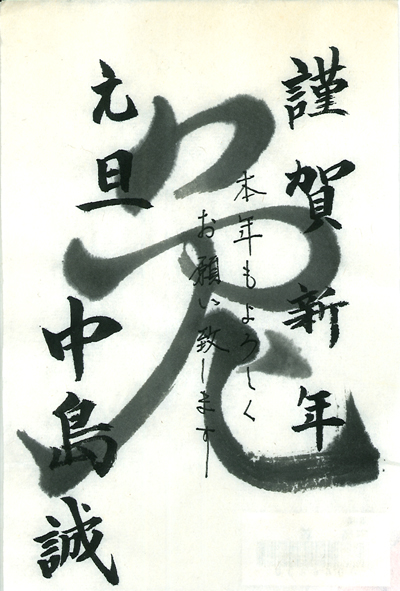 謹賀新年
本年もよろしく
お願い致します
兎
元旦
中島誠